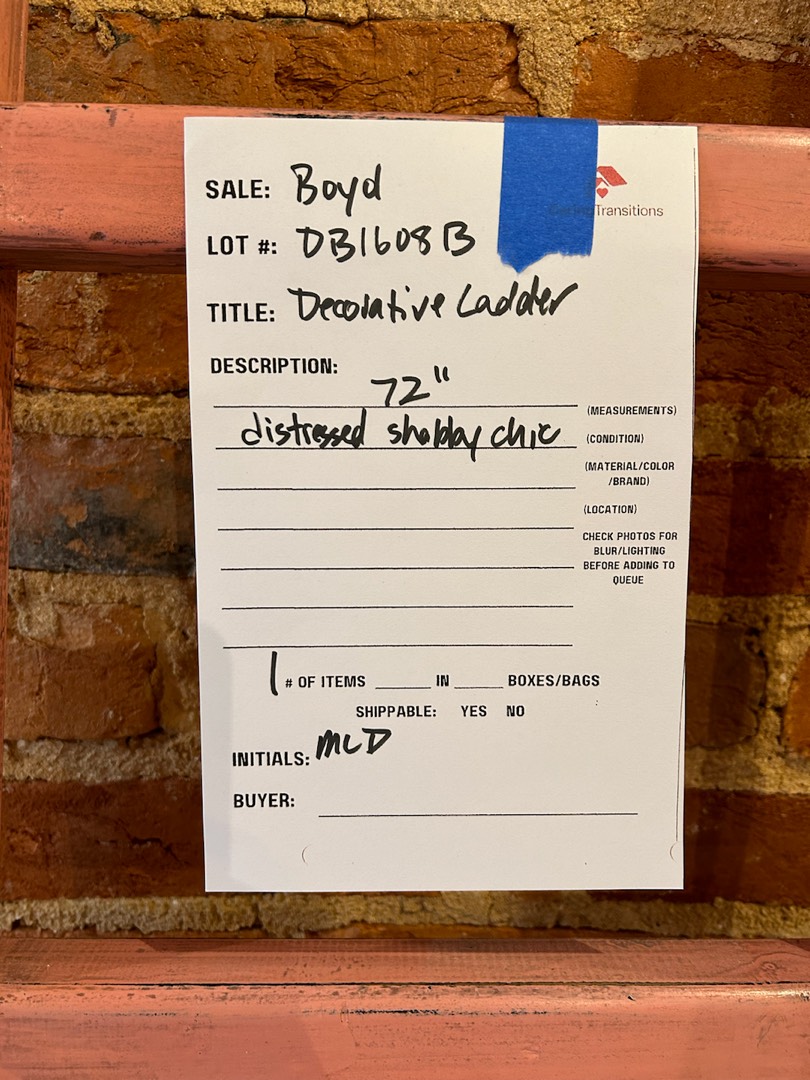 SALE: Boyd
Transitions
LOT #: DB1608B
TITLE: Decorative Ladder
DESCRIPTION:
72"
(MEASUREMENTS)
distressed shabby chic
(CONDITION)
(MATERIAL/COLOR
/BRAND)
(LOCATION)
CHECK PHOTOS FOR
BLUR/LIGHTING
BEFORE ADDING TO
QUEUE
1 # OF ITEMS ______ IN ______ BOXES/BAGS
SHIPPABLE: YES NO
INITIALS: MLD
BUYER: